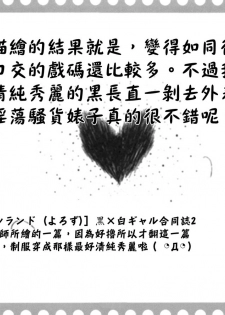 描繪的結果就是，變得如同後
口交的戲碼還比較多。不過我
清純秀麗的黑長直一剝去外表
淫蕩騷貨婊子真的很不錯呢
ンランド (よろず)] 黑×白ギャル合同誌2
師所繪的一篇，因為好擼所以才翻這一篇
，制服穿成那樣最好清純秀麗啦 ( ºДº )